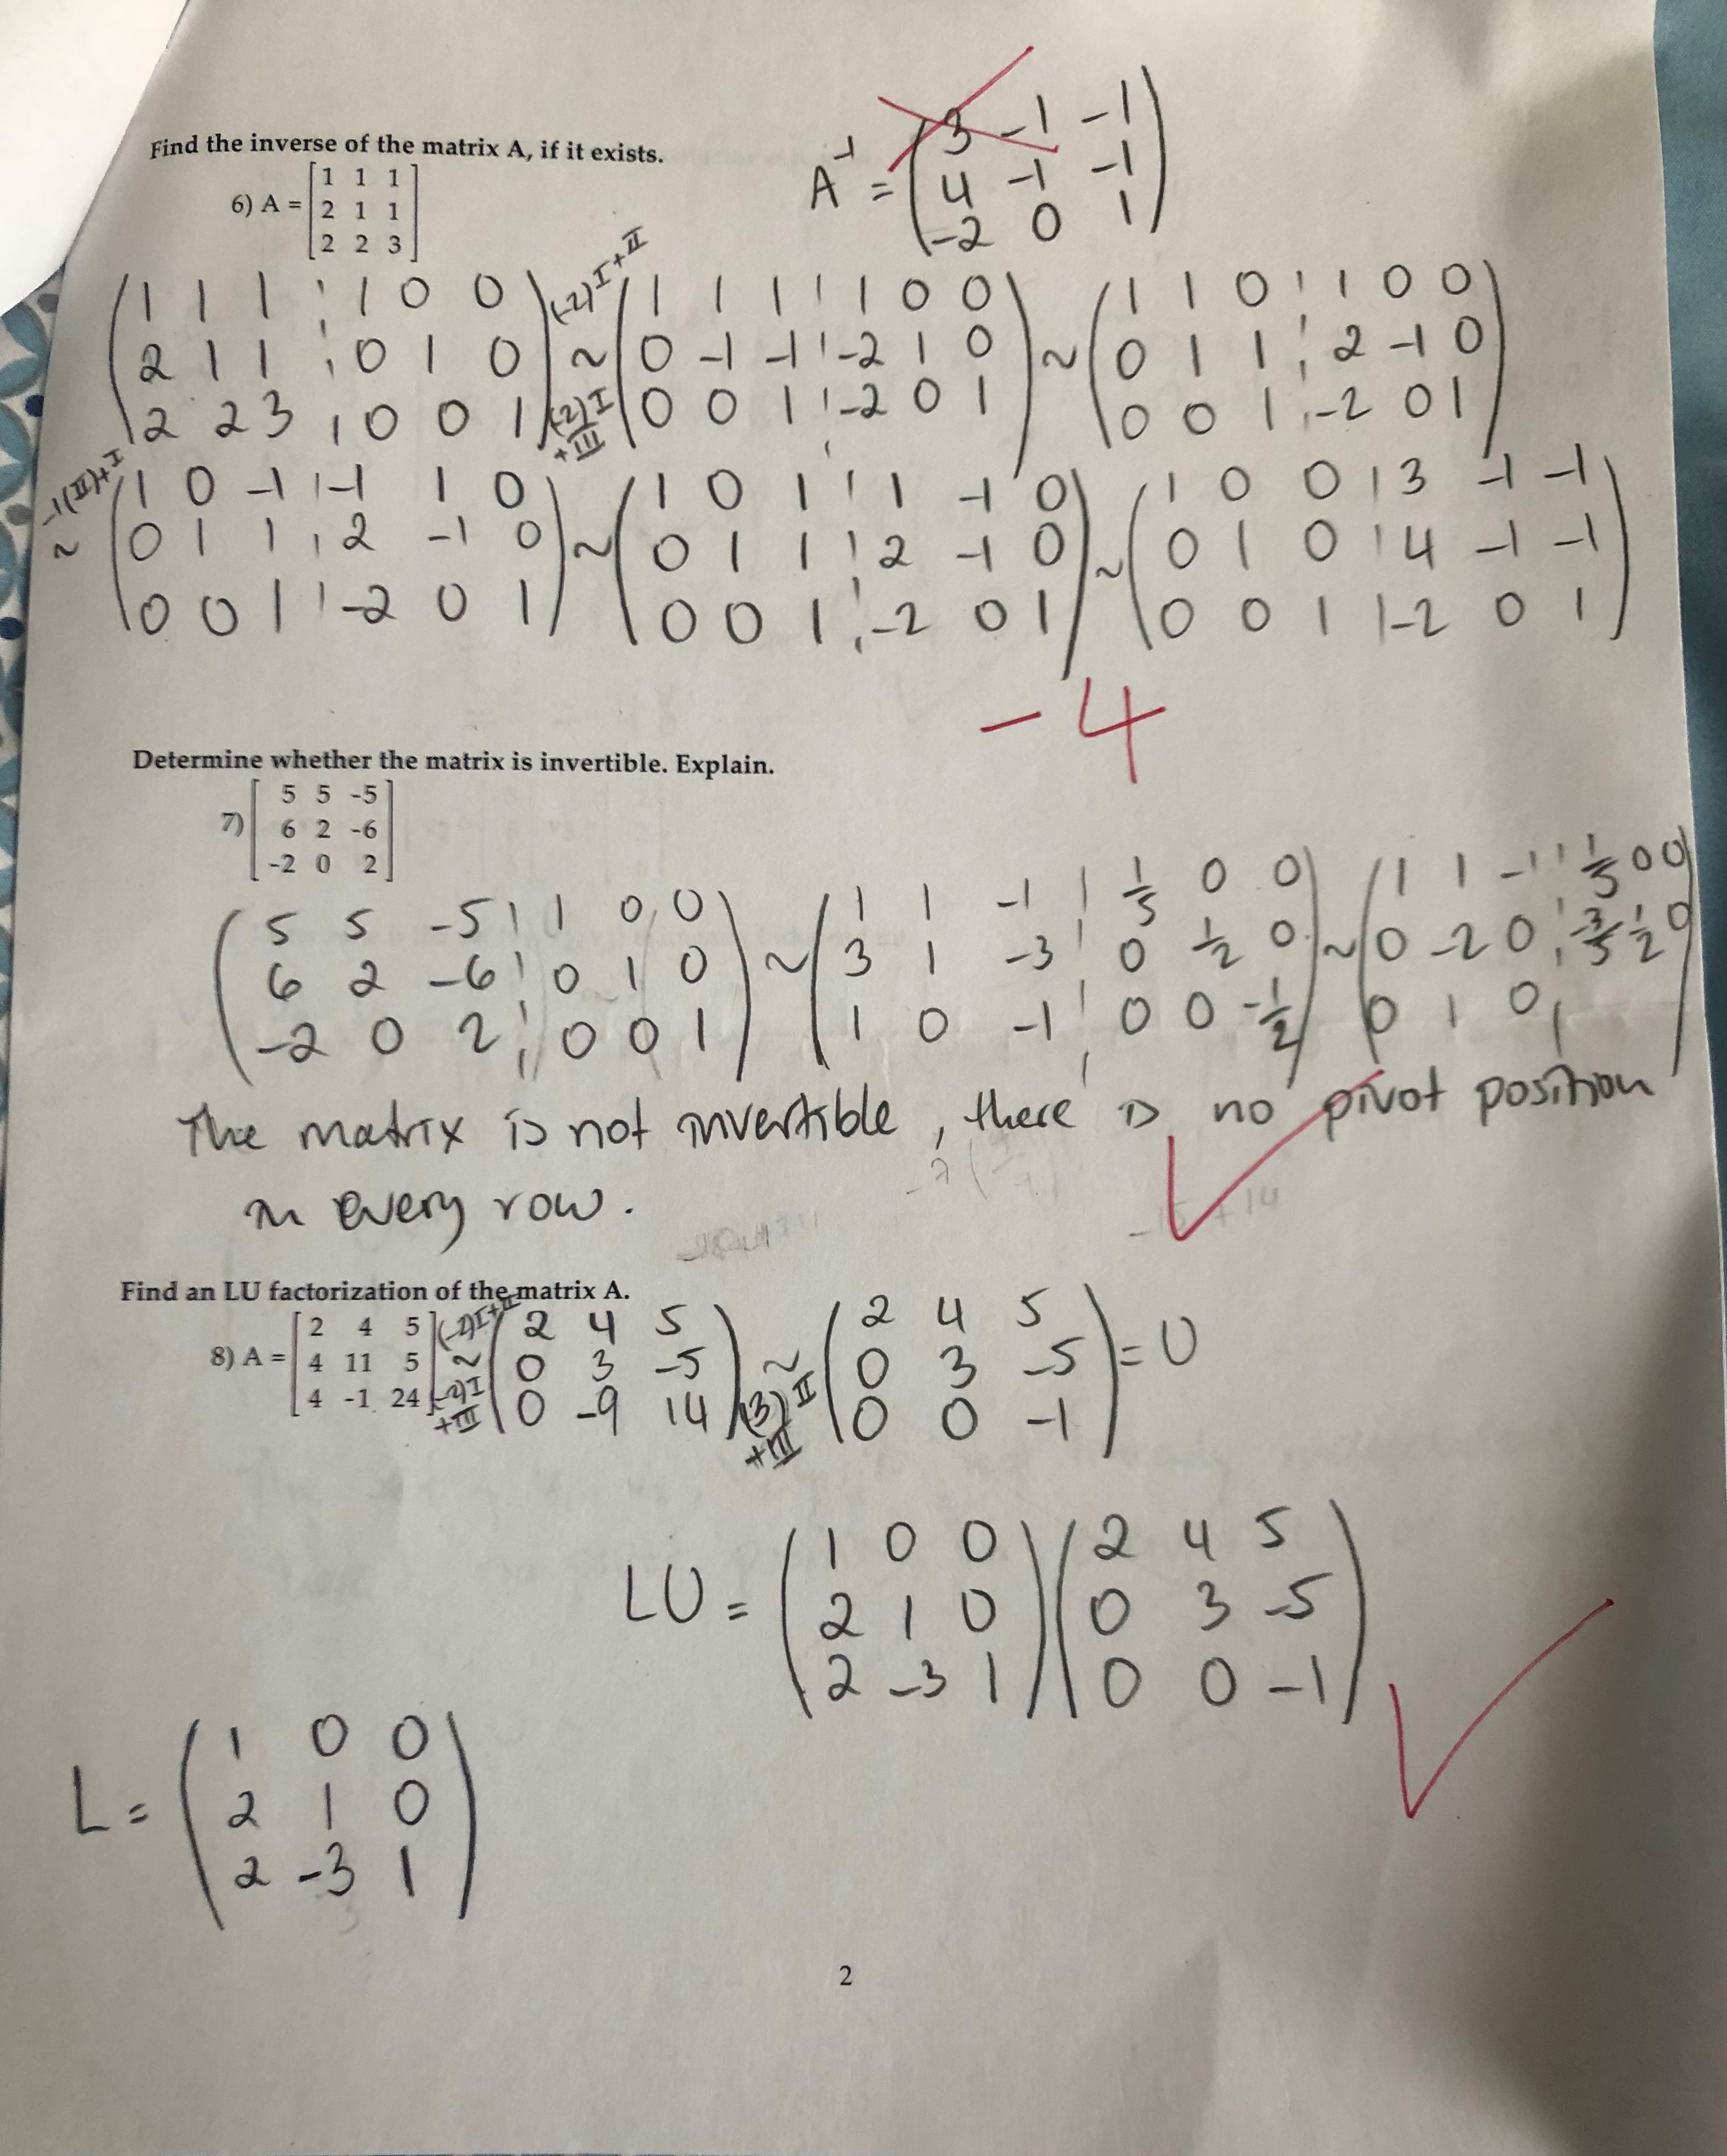 Find the inverse of the matrix A, if it exists.
6) A =
1 1 1
2 1 1
2 2 3
A⁻¹ =
3 -1 -1
4 -1 -1
-2 0 1
1 1 1 | 1 0 0
2 1 1 | 0 1 0
2 2 3 | 0 0 1
(-2)I+II
~
(-2)I
+III
1 1 1 | 1 0 0
0 -1 -1 | -2 1 0
0 0 1 | -2 0 1
~
1 1 0 | 1 0 0
0 1 1 | 2 -1 0
0 0 1 | -2 0 1
-1(II)+I
~
1 0 -1 | -1 1 0
0 1 1 | 2 -1 0
0 0 1 | -2 0 1
~
1 0 1 | 1 -1 0
0 1 1 | 2 -1 0
0 0 1 | -2 0 1
~
1 0 0 | 3 -1 -1
0 1 0 | 4 -1 -1
0 0 1 | -2 0 1
-4
Determine whether the matrix is invertible. Explain.
7)
5 5 -5
6 2 -6
-2 0 2
5 5 -5 | 1 0 0
6 2 -6 | 0 1 0
-2 0 2 | 0 0 1
~
1 1 -1 | 1/5 0 0
3 1 -3 | 0 1/2 0
1 0 -1 | 0 0 -1/2
~
1 1 -1 | 1/5 0 0
0 -2 0 | -3/5 1/2 0
0 1 0 |
The matrix is not invertible, there is no pivot position
in every row.
Find an LU factorization of the matrix A.
8) A =
2 4 5
4 11 5
4 -1 24
(-2)I+II
~
(-2)I
+III
2 4 5
0 3 -5
0 -9 14
~
(3)II
+III
2 4 5
0 3 -5
0 0 -1
= U
LU =
1 0 0
2 1 0
2 -3 1
2 4 5
0 3 -5
0 0 -1
L =
1 0 0
2 1 0
2 -3 1
2